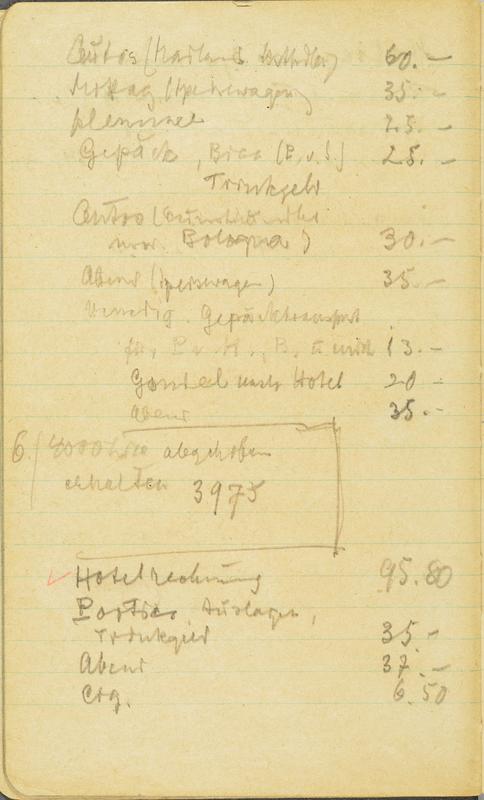 Autos (Mailand 60.—
Mittag (Speisewagen) 35.—
25.—
Gepäck, Bier (P. u. S.) 25.—
Trinkgeld
Autos (
Bologna) 30.—
Abend (Speisewagen) 35.—
Venedig. Gepäcktransport
für P. u. H., B. u. mich 13.—
Gondel nach Hotel 20 —
Abend 35.—
6./ 4000 Lire abgehoben
erhalten 3975
Hotelrechnung 95.80
Portier, Auslagen,
Trinkgeld 35.—
Abend 37.—
Cig. 6.50